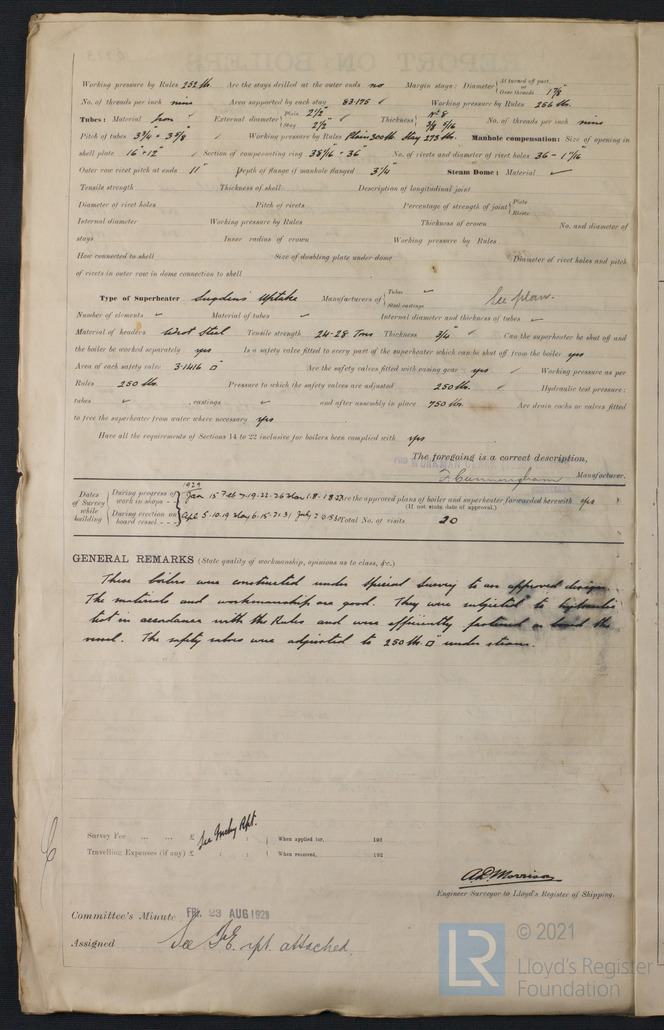 Working pressure by Rules 252 lbs. Are the stays drilled at the outer ends no Margin stays: Diameter { At turned off part, or Over threads 1 7/8
No. of threads per inch nine Area supported by each stay 83.175 Working pressure by Rules 256 lbs.
Tubes: Material Iron External diameter { Plain 2 1/2" Stay 2 1/2" Thickness { No 8 5/16 No. of threads per inch nine
Pitch of tubes 3 3/4 + 3 5/8 Working pressure by Rules Plain 300 lbs Stay 273 lbs. Manhole compensation: Size of opening in
shell plate 16" + 12" Section of compensating ring No. of rivets and diameter of rivet holes 36 - 1 7/16
Outer row rivet pitch at ends 11" Depth of flange if manhole flanged 3 3/4" Steam Dome: Material
Tensile strength Thickness of shell Description of longitudinal joint
Diameter of rivet holes Pitch of rivets Percentage of strength of joint { Plate Rivets
Internal diameter Working pressure by Rules Thickness of crown No. and diameter of
stays Inner radius of crown Working pressure by Rules
How connected to shell Size of doubling plate under dome Diameter of rivet holes and pitch
of rivets in outer row in dome connection to shell
Type of Superheater Sugdens Uptake Manufacturers of { Tubes Steel castings See plan.
Number of elements Material of tubes Internal diameter and thickness of tubes
Material of headers Wrot Steel Tensile strength 24-28 Tons Thickness 3/4" Can the superheater be shut off and
the boiler be worked separately yes Is a safety valve fitted to every part of the superheater which can be shut off from the boiler yes
Area of each safety valve 3.1416 □" Are the safety valves fitted with easing gear yes Working pressure as per
Rules 250 lbs. Pressure to which the safety valves are adjusted 250 lbs. Hydraulic test pressure:
tubes castings and after assembly in place 750 lbs. Are drain cocks or valves fitted
to free the superheater from water where necessary yes
Have all the requirements of Sections 14 to 22 inclusive for boilers been complied with yes
The foregoing is a correct description,
FOR WORKMAN
F. Cunningham Manufacturer.
Dates of Survey while building { During progress of work in shops - - { 1929 Jan 15 Feb 7.19.22.26 Mar 1.8.18.27 Are the approved plans of boiler and superheater forwarded herewith yes
(If not state date of approval.)
During erection on board vessel - - - Apl 5.10.19 May 6.15.21.31 July Total No. of visits 20
GENERAL REMARKS (State quality of workmanship, opinions as to class, &c.)
These boilers were constructed under Special Survey to an approved design.
The materials and workmanship are good. They were subjected to hydraulic
test in accordance with the Rules and were efficiently fastened on board the
vessel. The safety valves were adjusted to 250 lbs. □" under steam.
Survey Fee ... ... £ : : When applied for, 192
See Machy Rpt.
Travelling Expenses (if any) £ : : When received, 192
A.D. Morrison
Engineer Surveyor to Lloyd's Register of Shipping.
Committee's Minute FRI. 23 AUG 1929
Assigned See F.E. rpt. attached.
LR © 2021
Lloyd's Register
Foundation